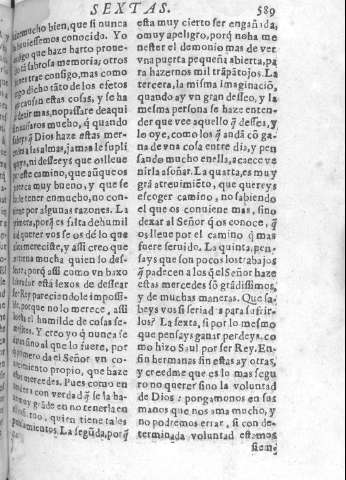 SEXTAS. 589
mucho bien, que si nunca
huuiessemos conocido. Yo
digo que haze harto proue-
ta sabrosa memoria; otros
trae consigo, mas como
dicho tãto de los efetos
causan estas cosas, y se ha
dezir mas, no passare de aqui
auisaros mucho, q̃ quando
q̃ Dios haze estas mer-
a las almas, jamas le supli-
ni desseeys que os lleue
este camino, que aũque os
mucho bueno, y que se
tener en mucho, no con-
por algunas razones. La
porq̃ es falta de humil-
querer vos se os dè lo que
merecistes, y assi creo que
mucha quien lo des-
porq̃ assi como vn baxo
està lexos de dessear
Rey pareciendole impossi-
porque no lo merece, assi
el humilde de cosas se-
Y creo yo q̃ nunca se
sino al que lo fuere, por
primero da el Señor vn co-
propio, que haze
mercedes. Pues como en
con verdad q̃ se la ha-
muy grãde en no tenerla en
quien tiene tales
pensamientos. La segũda, porq̃
està muy cierto ser engañada,
o muy apeligro, porq̃ no ha me
nester el demonio mas de ver
vna puerta pequeña abierta, pa
ra hazernos mil trãpatojos. La
tercera, la misma imaginaciõ,
quando ay vn gran desseo, y la
mesma persona se haze enten-
der que vee aquello q̃ dessea, y
lo oye, como los q̃ andã cõ ga-
na de vna cosa entre dia, y pen
sando mucho en ella, acaece ve
nirla a soñar. La quarta, es muy
grã atreuimiẽto, que quereys
escoger camino, no sabiendo
el que os conuiene mas, sino
dexar al Señor q̃ os conoce, q̃
os lleue por el camino q̃ mas
fuere seruido. La quinta, pen-
says que son pocos los trabajos
q̃ padecen a los q̃ el Señor haze
estas mercedes sõ grãdissimos,
y de muchas maneras. Que sa-
beys vos si seriads para sufrir-
los? La sexta, si por lo mesmo
que pensays ganar perdeys, co
mo hizo Saul por ser Rey. En-
fin hermanas sin estas ay otras,
y creedme que es lo mas segu
ro no querer sino la voluntad
de Dios: pongamonos en sus
manos que nos ama mucho, y
no podremos errar, si con de-
terminada voluntad estamos
siemq̃